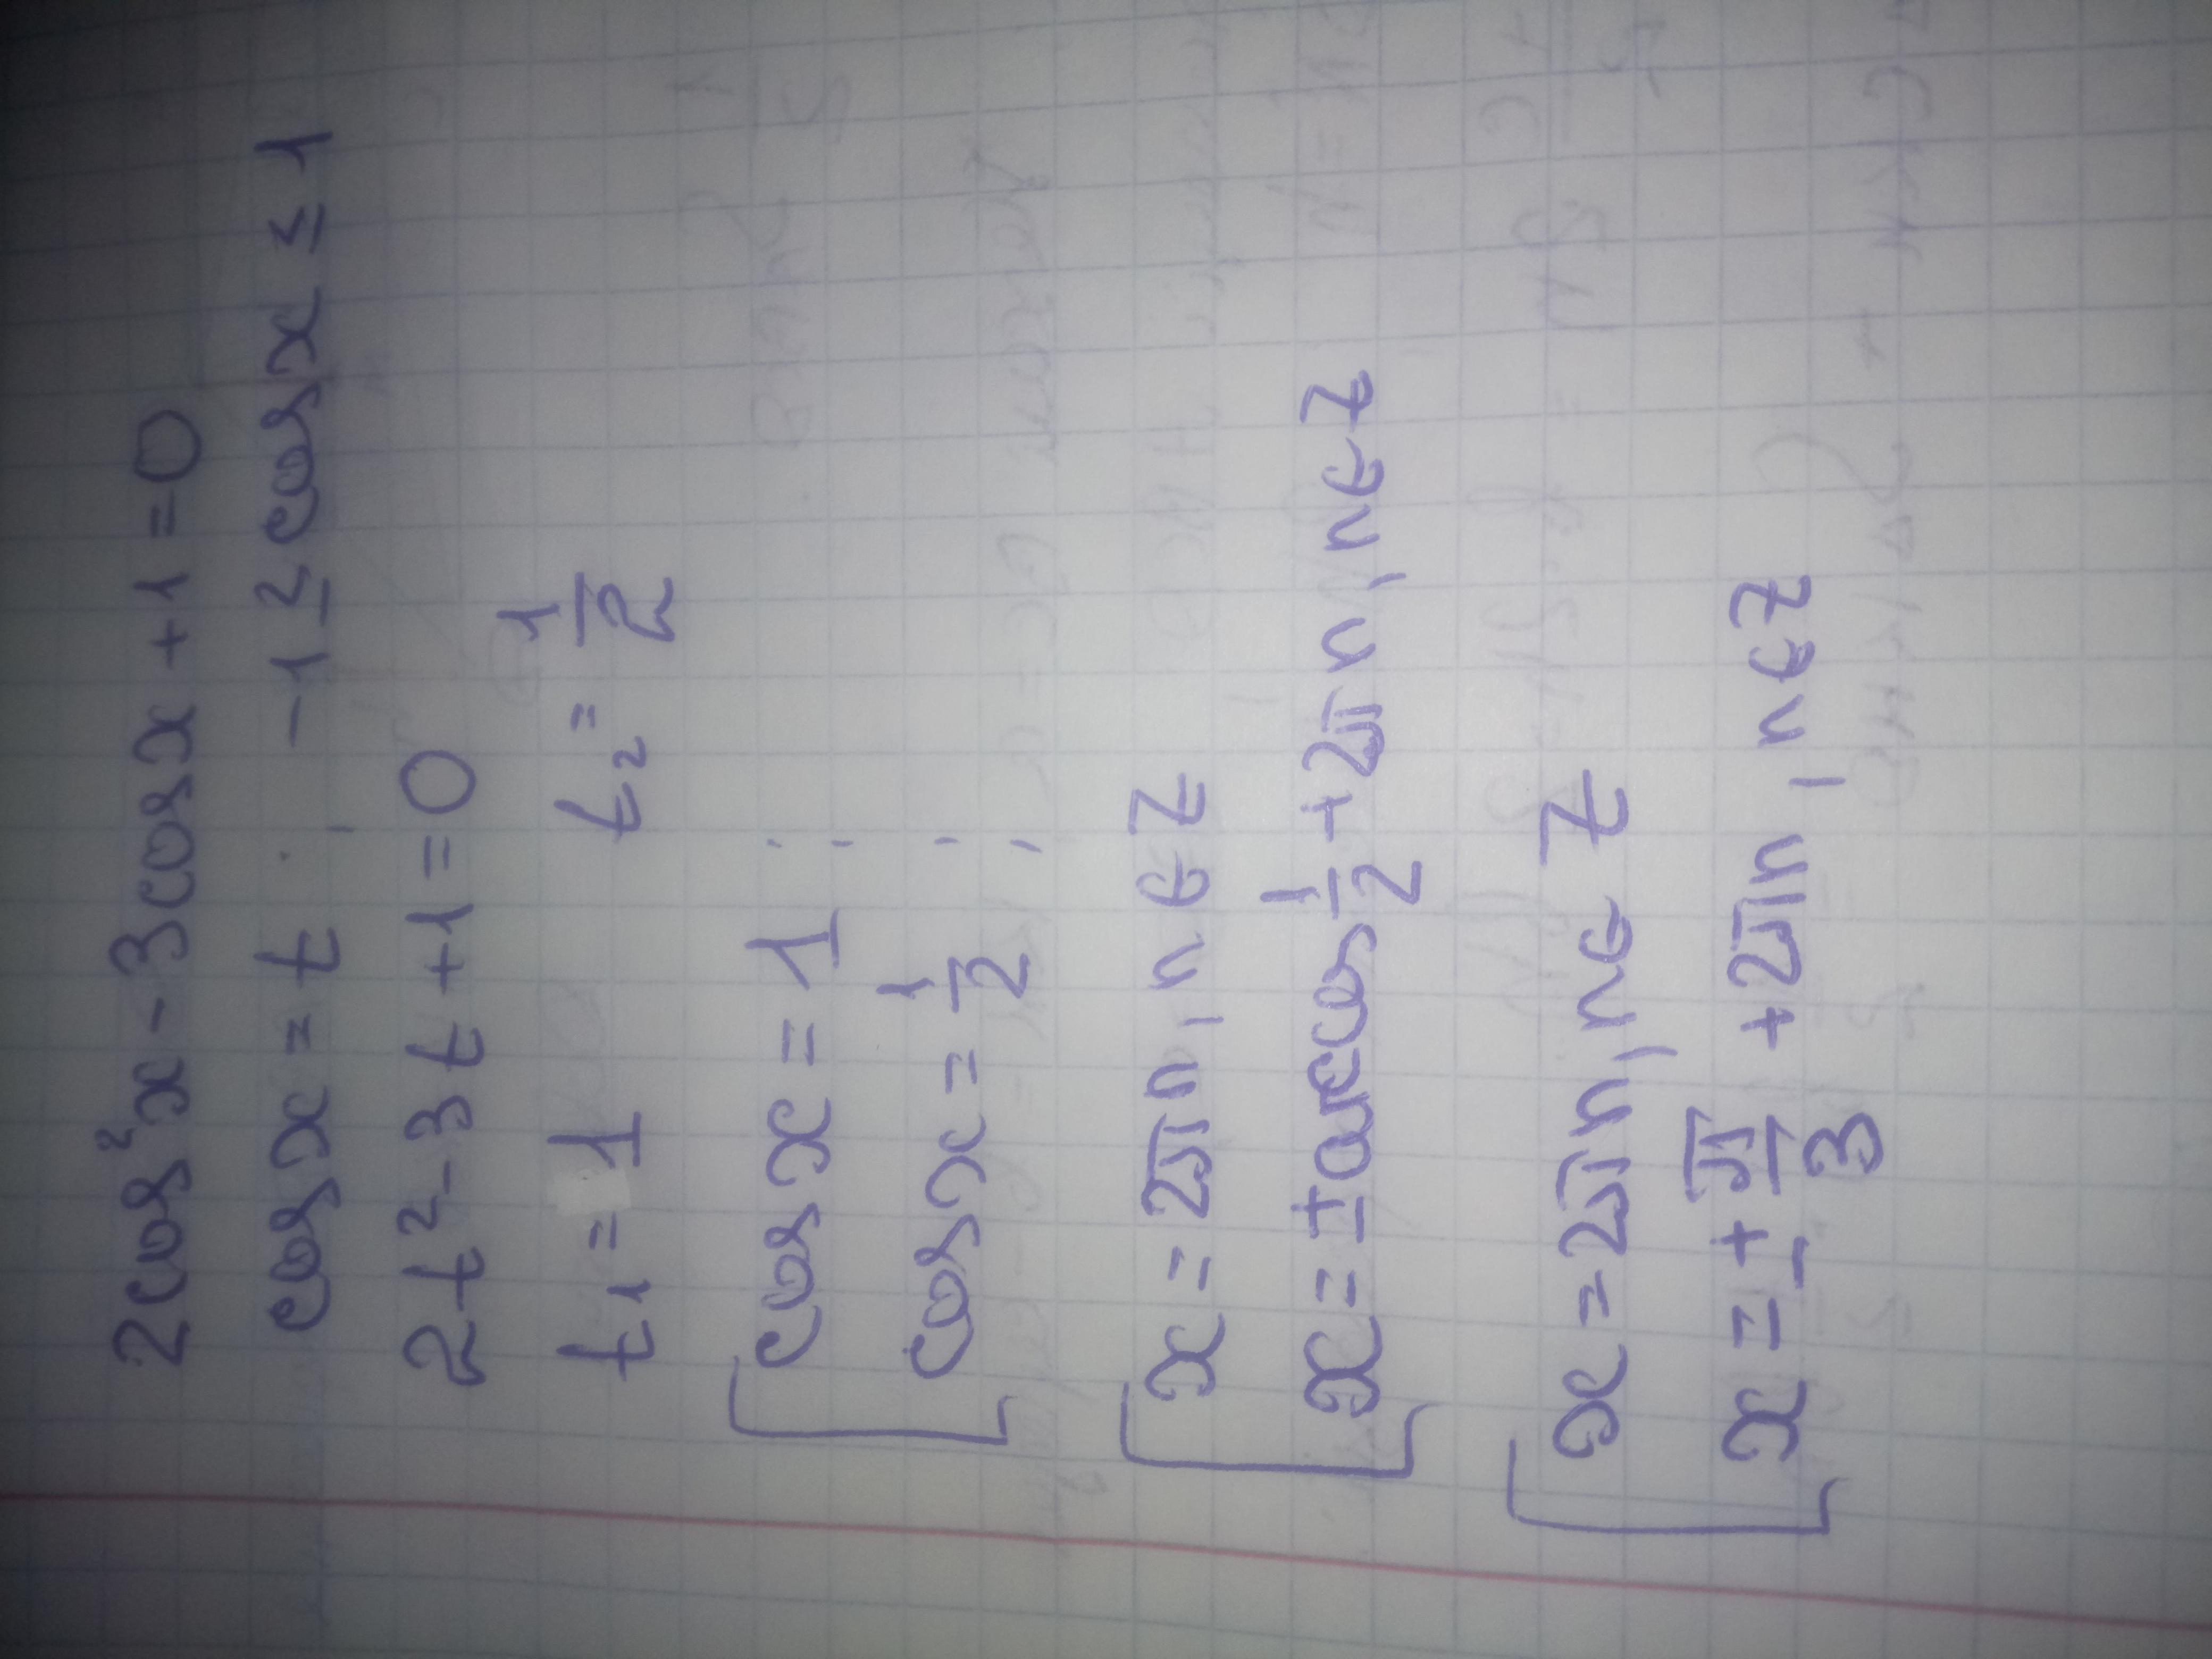 2cos²x - 3cosx + 1 = 0
cosx = t, -1 ≤ cosx ≤ 1
2t² - 3t + 1 = 0
t₁ = 1 t₂ = 1/2
[ cosx = 1
cosx = 1/2
[ x = 2πn, n ∈ Z
x = ± arccos 1/2 + 2πn, n ∈ Z
[ x = 2πn, n ∈ Z
x = ± π/3 + 2πn, n ∈ Z